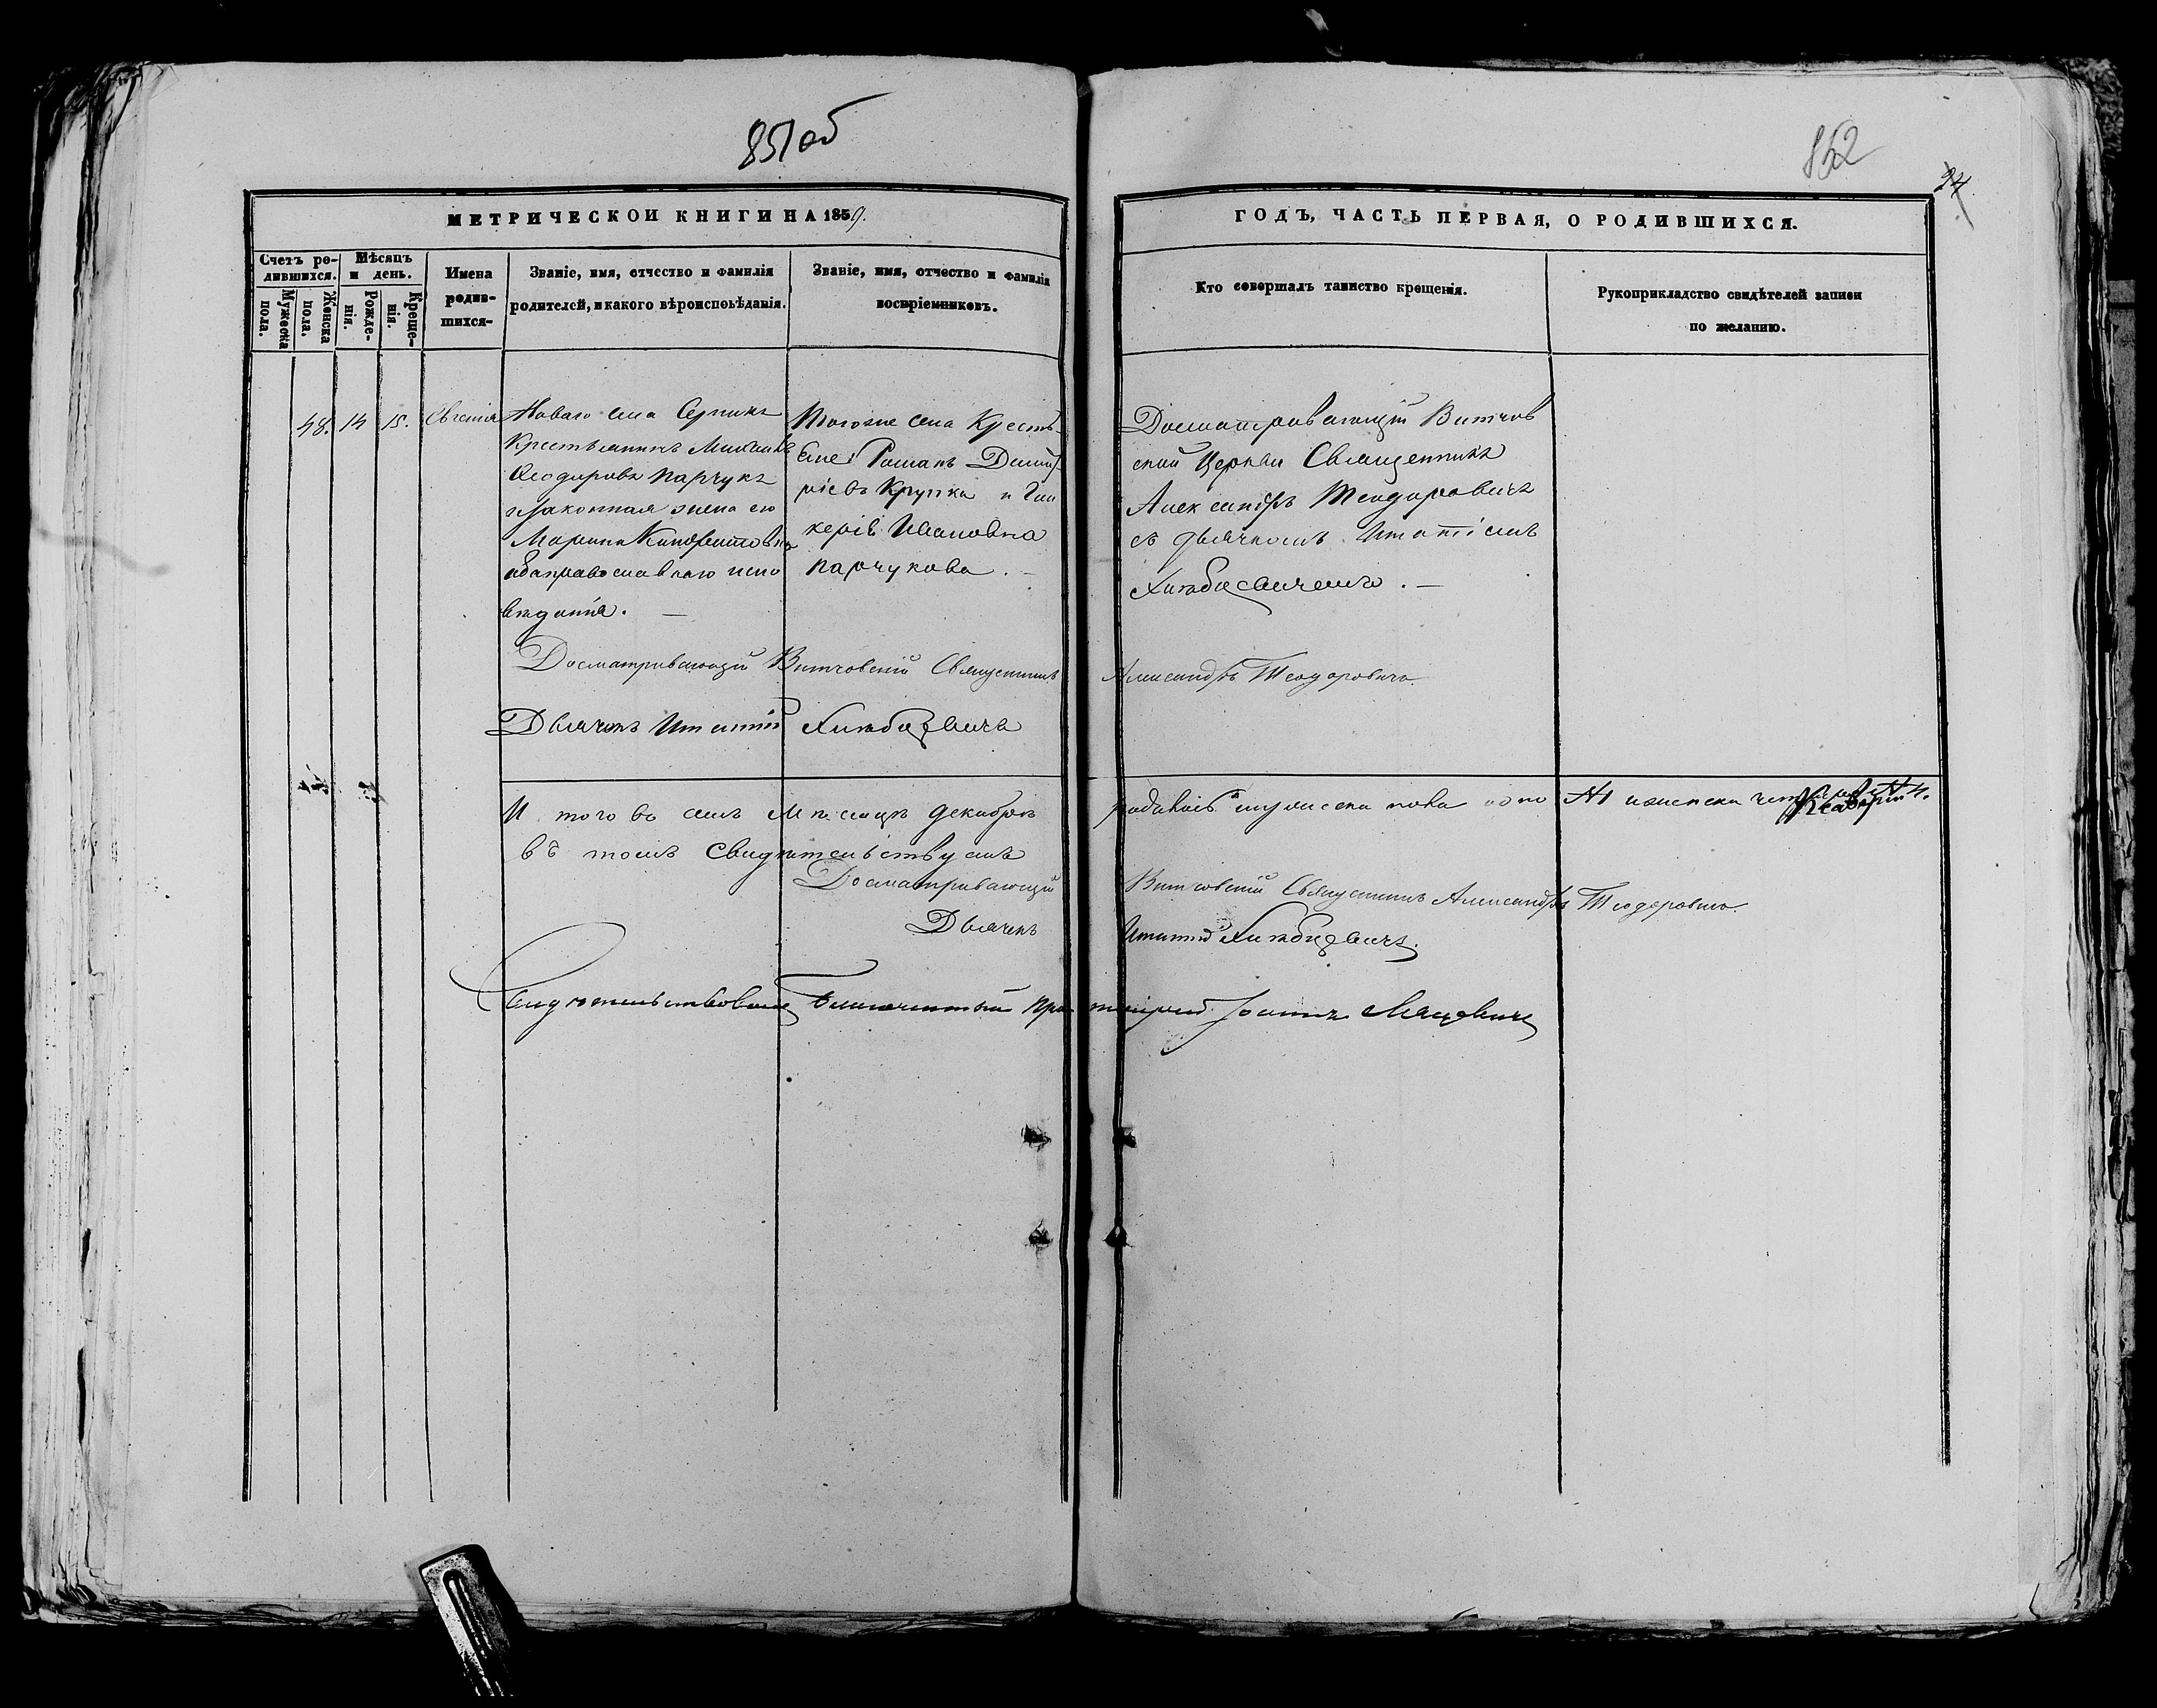 851 об
852
24
МЕТРИЧЕСКОЙ КНИГИ НА 1859.
ГОДЪ, ЧАСТЬ ПЕРВАЯ, О РОДИВШИХСЯ.
Счетъ ро-
дившихся.
Мужеска
пола.
Женска
пола.
Мѣсяцъ
и день.
Рожде-
нія.
Креще-
нія.
Имена
родив-
шихся-
Званіе, имя, отчество и фамилія
родителей, и какого вѣроисповѣданія.
Званіе, имя, отчество и фамилія
воспріемниковъ.
Кто совершалъ таинство крещенія.
Рукоприкладство свидѣтелей записи
по желанію.
48. 14 15. Евгенія
Новаго села Серник
Крестьянинъ Михаилъ
Ѳеодоровъ Парчукъ
и законная жена его
Марина
оба православнаго испо
вѣданія. —
Тогоже села Кресть
яне Романъ Димит
ріевъ Крупка и Гли
керія Ивановна
Парчукова. —
Досматривающій Витчов
ской Церкви Священникъ
Александръ Теодоровичъ
съ дьячкомъ Игнатіемъ
Хлѣбцевичемъ. —
Досматривающій Витчовскій Священникъ Александръ Теодоровичъ
Дьячекъ Игнатій Хлѣбцевичъ
И того въ семъ Мѣсяцѣ Декабрѣ родилось мужеска пола одно №1 и женска №4.
въ томъ Свидѣтельствуемъ
Досматривающій Витчовскій Священникъ Александръ Теодоровичъ
Дьячекъ Игнатій Хлѣбцевичъ.
Свидѣтельствовалъ Благочинный Протоіерей Іоаннъ Мацевичъ